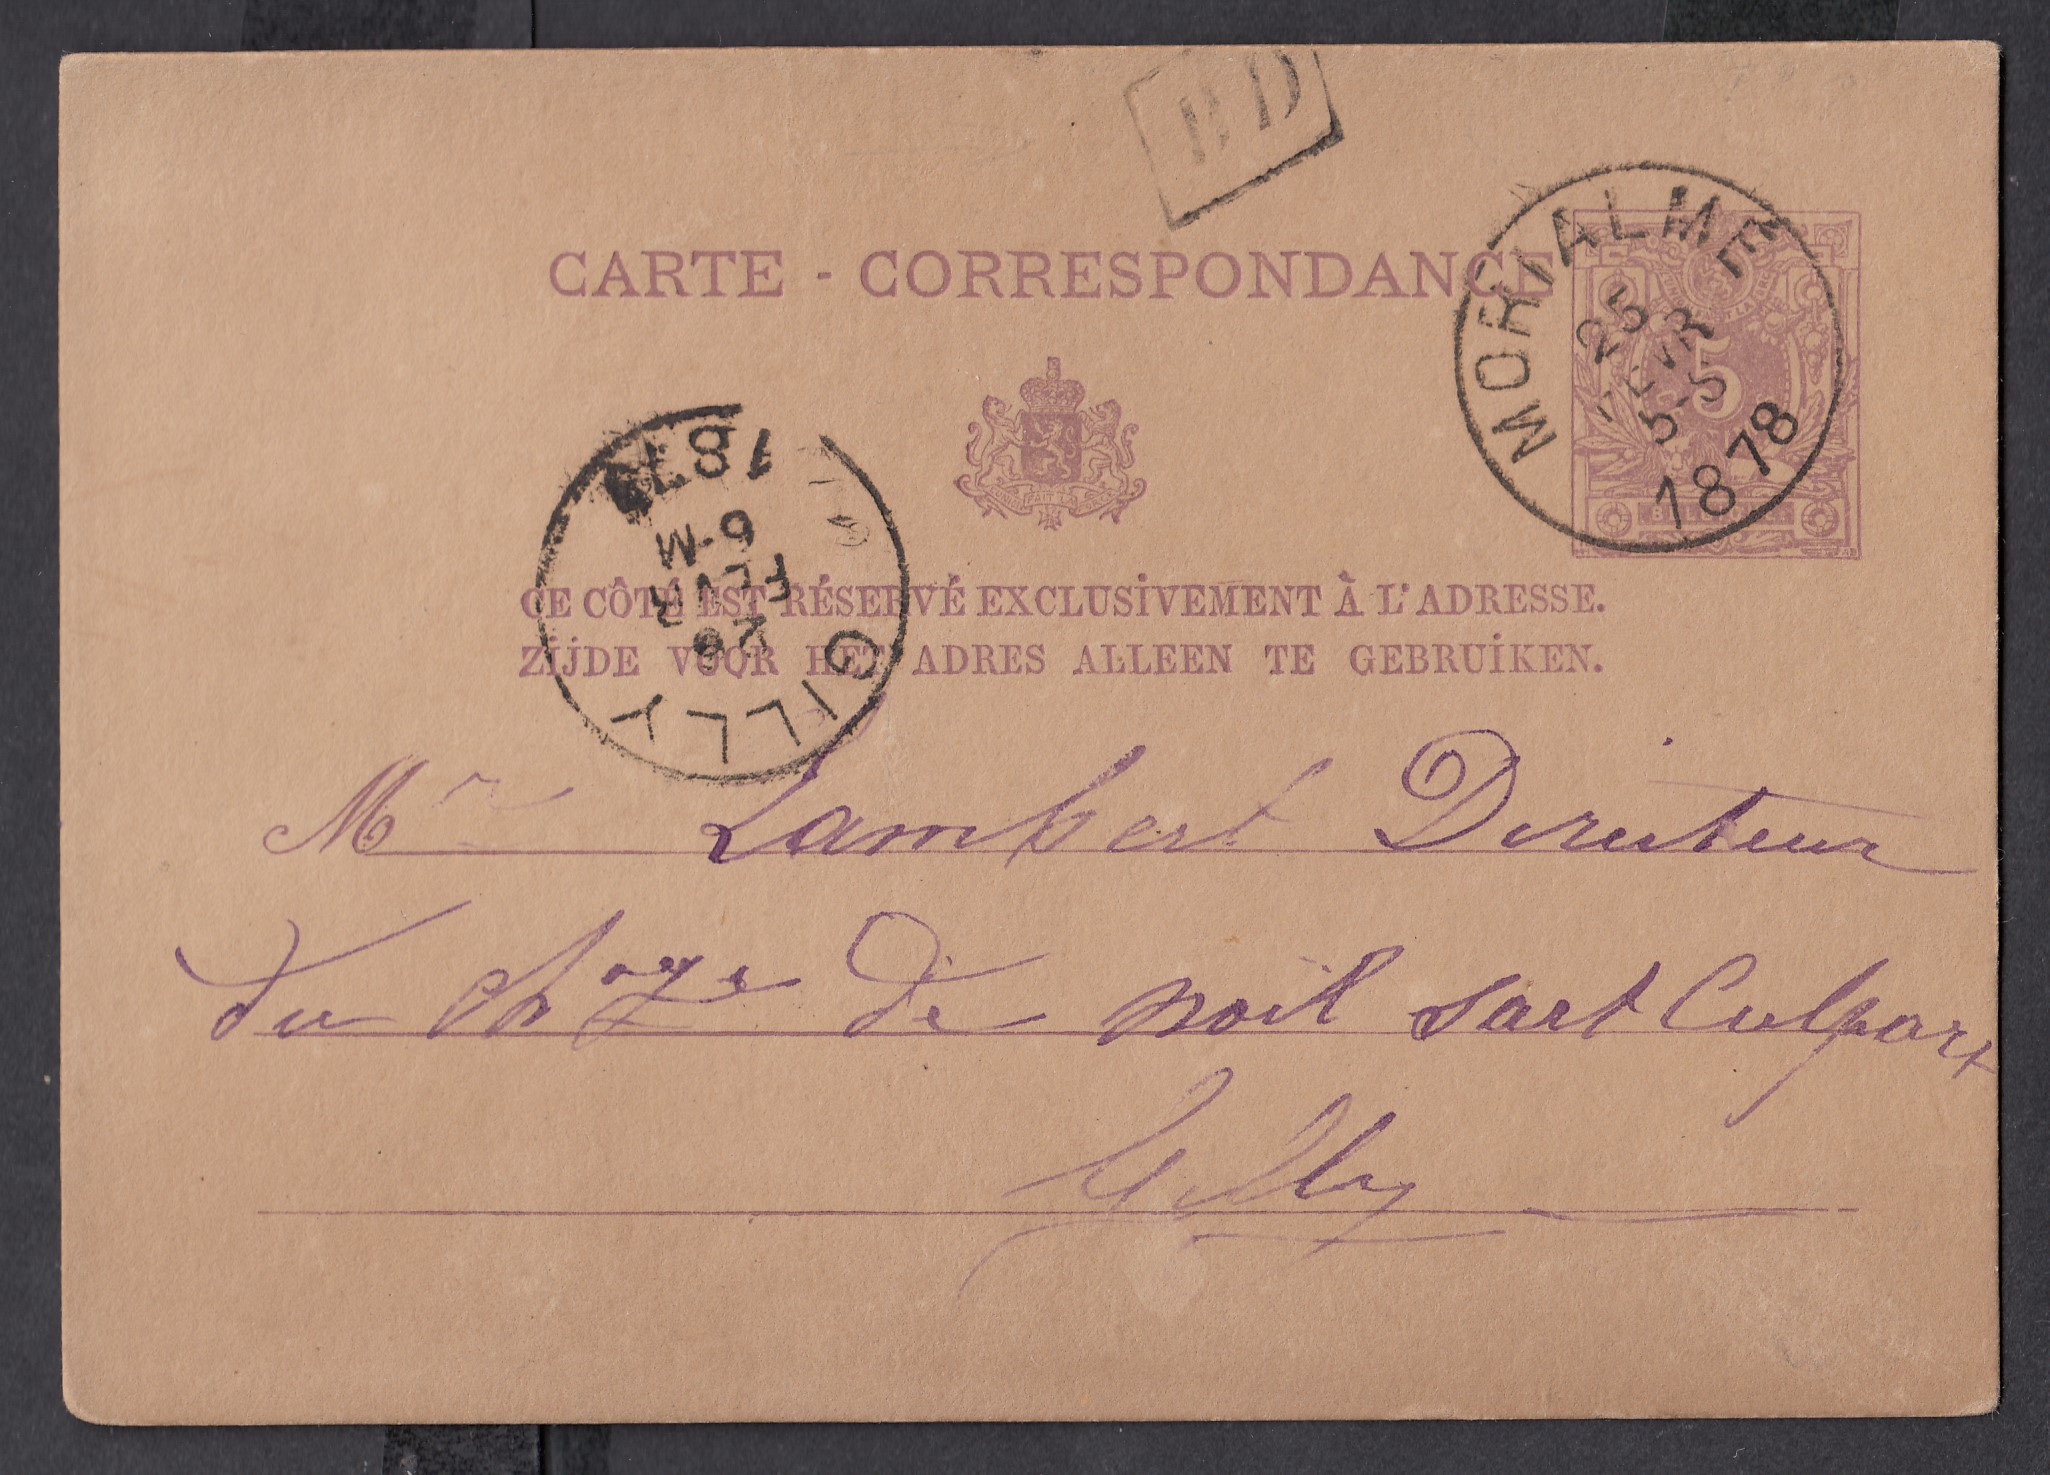 BD
CARTE - CORRESPONDANCE
MORIALMÉ
25
FEVR
5-S
1878
5
BELGIQUE
1878
6-M
FEVR
26
GILLY
CE CÔTÉ EST RÉSERVÉ EXCLUSIVEMENT À L'ADRESSE.
ZIJDE VOOR HET ADRES ALLEEN TE GEBRUIKEN.
Mr Lambert Directeur
du chage de noil sart Culpart
Gilly